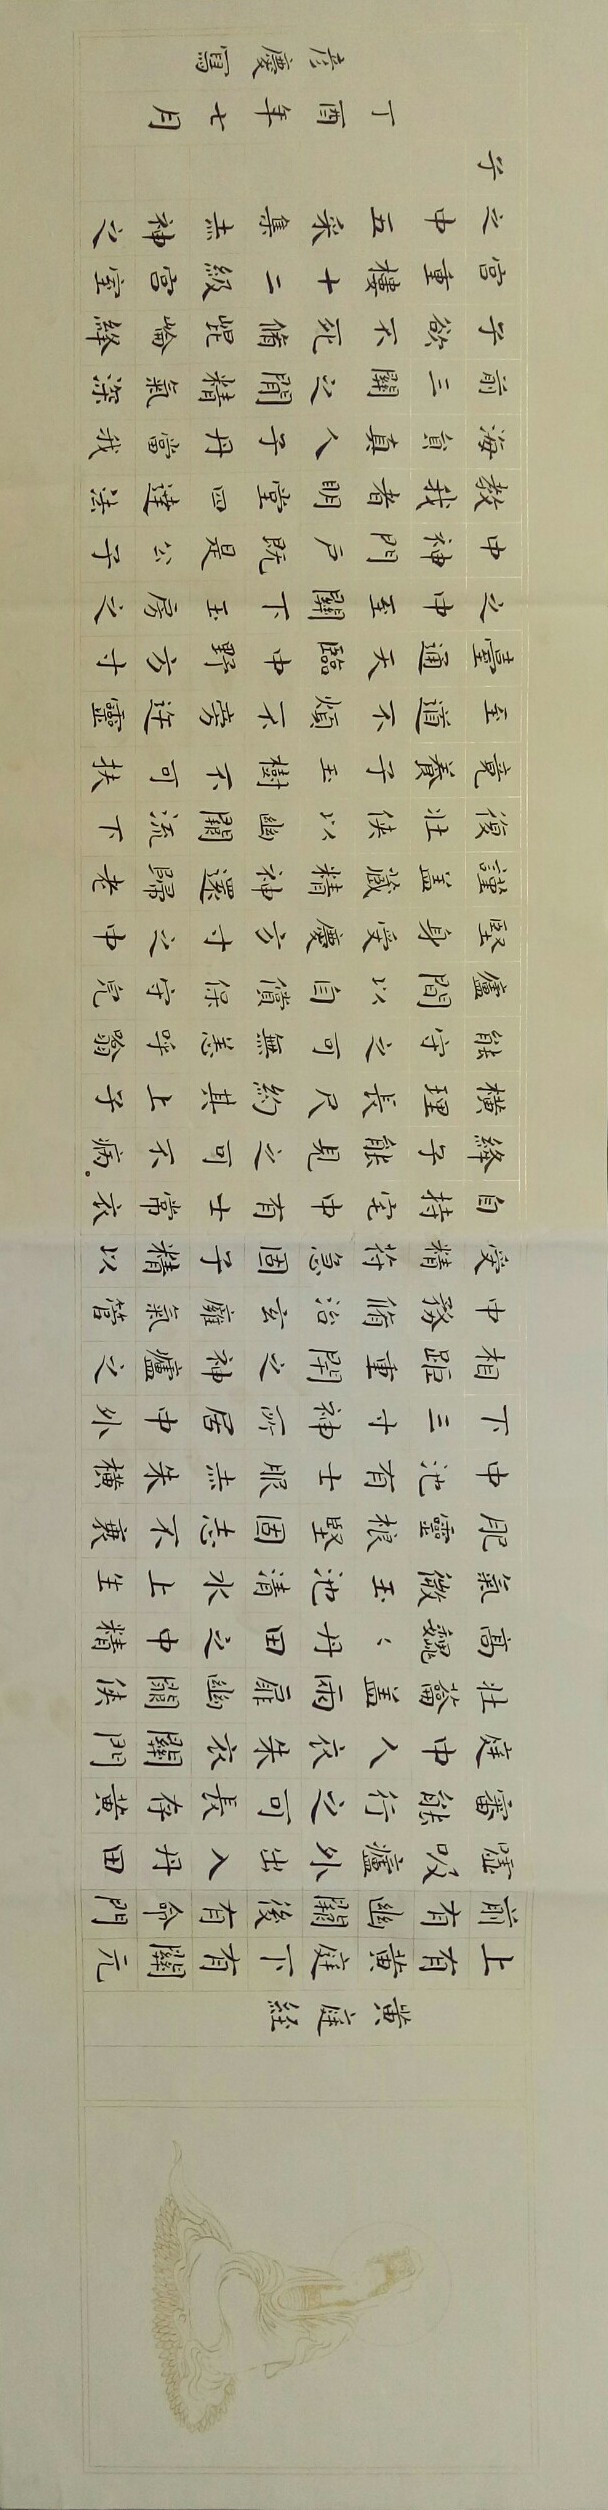 黄庭经
上有黄庭下有關元
前有幽關後有命門
嘘吸廬外出入丹田
審能行之可長存黄
庭中人衣朱衣關門
壮蘥盖兩扉幽闕俠
高魏〻丹田之中精
氣微玉池清水上生
肥靈根堅固志不衰
中池有士服赤朱横
下三寸神所居中外
相距重閉之神廬之
中務脩治玄癰氣管
受精符急固子精以
自持宅中有士常衣
絳子能見之可不病。
横理長尺約其上子
能守之可無恙呼翕
廬間以自償保守完
堅身受慶方寸之中
謹盖藏精神還歸老
復壮俠以幽闕流下
竟養子玉樹不可扶
至道不煩不旁迕靈
臺通天臨中野方寸
之中至關下玉房之
中神門户既是公子
教我者明堂四達法
海員真人子丹當我
前三關之間精氣深
子欲不死脩崐崘絳
宫重樓十二級宫室
之中五采集赤神之
子
丁酉年七月
彦慶寫